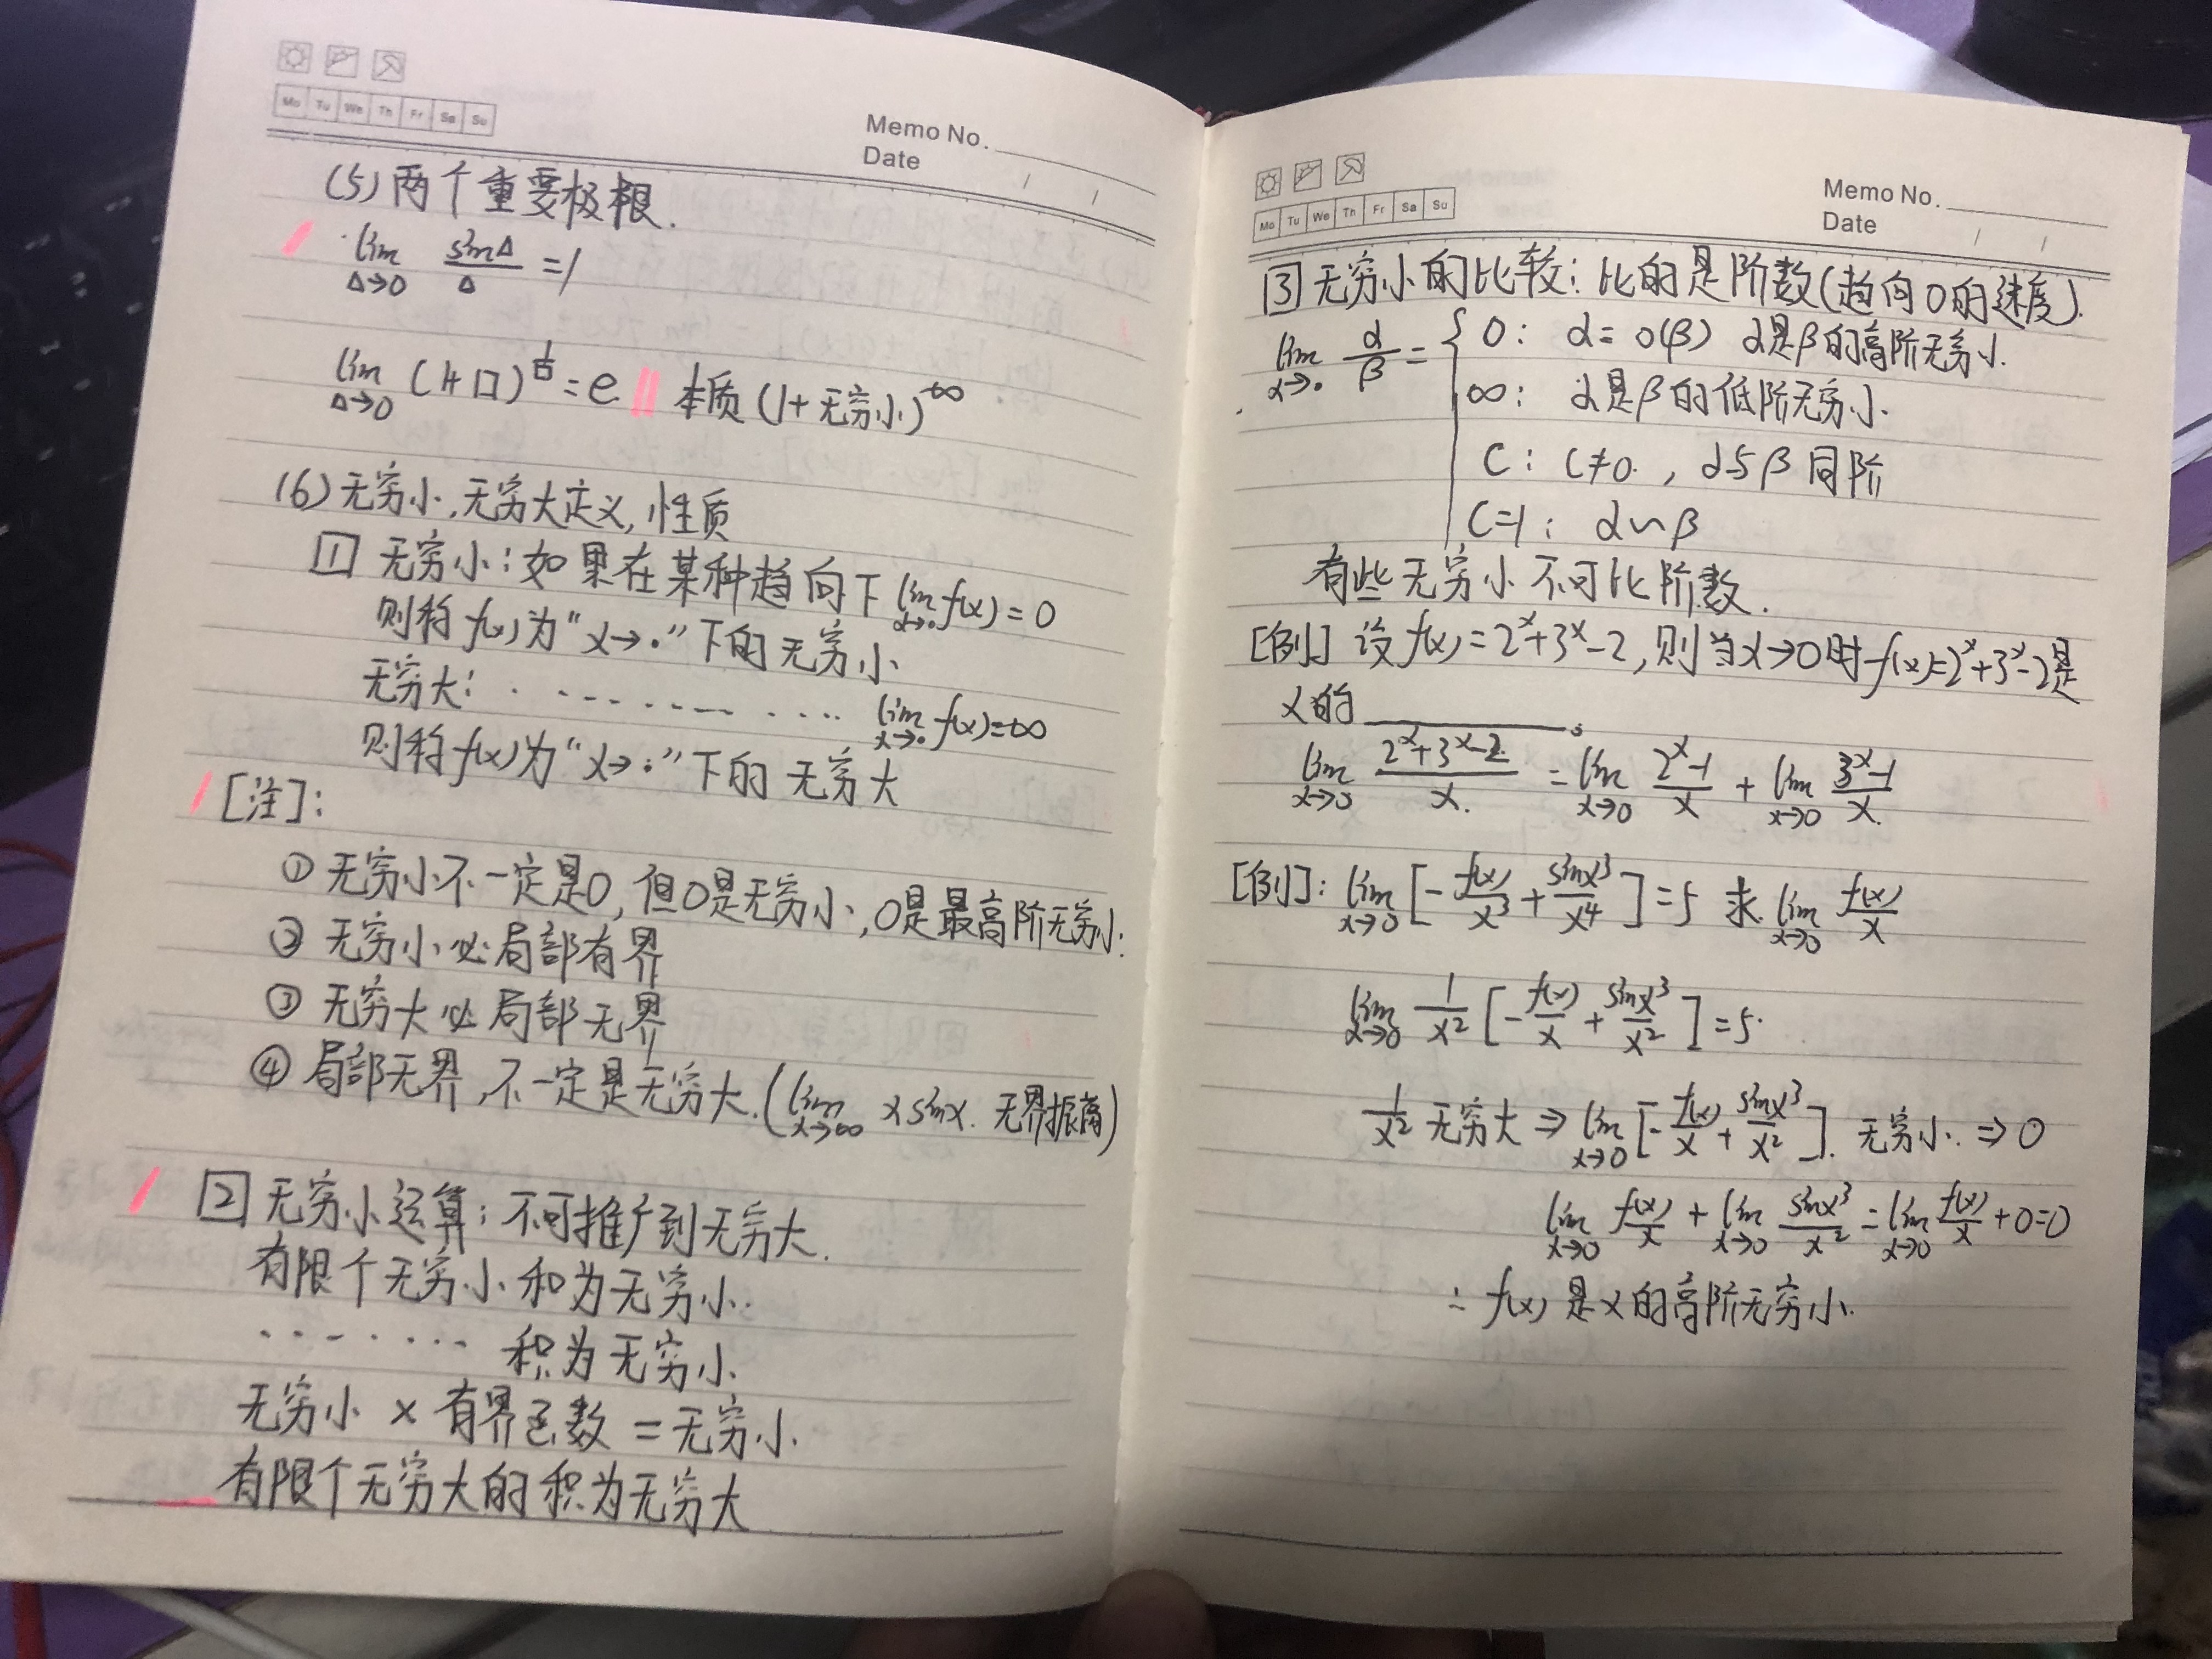 Mo Tu We Th Fr Sa Su
Memo No.
Date / /
(5)两个重要极限.
lim Δ→0 sinΔ/Δ =1
lim Δ→0 (1+□)^(1/□) = e 本质(1+无穷小)^∞
(6)无穷小,无穷大定义,性质
1 无穷小:如果在某种趋向下 lim x→• f(x)=0
则称f(x)为“x→•”下的无穷小
无穷大: · - - - - - - - · · · lim x→• f(x)=∞
则称f(x)为“x→•”下的无穷大
[注]:
① 无穷小不一定是0,但0是无穷小,0是最高阶无穷小.
② 无穷小必局部有界
③ 无穷大必局部无界
④ 局部无界,不一定是无穷大.(lim x→∞ xsinx. 无界振荡)
2 无穷小运算:不可推广到无穷大.
有限个无穷小和为无穷小.
· · - · · · · 积为无穷小.
无穷小 × 有界函数 = 无穷小.
有限个无穷大的积为无穷大
Mo Tu We Th Fr Sa Su
Memo No.
Date / /
3 无穷小的比较:比的是阶数(趋向0的速度).
lim x→• α/β = { 0: α=o(β) α是β的高阶无穷小.
∞: α是β的低阶无穷小.
C: C≠0. , α与β同阶
C=1: α∽β
有些无穷小不可比阶数.
[例] 设f(x)=2^x+3^x-2,则当x→0时f(x)=2^x+3^x-2是
x的________.
lim x→0 (2^x+3^x-2)/x. = lim x→0 (2^x-1)/x + lim x→0 (3^x-1)/x.
[例]: lim x→0 [-f(x)/x³ + sinx³/x⁴] =5 求 lim x→0 f(x)/x
lim x→0 1/x² [-f(x)/x + sinx³/x²] =5.
1/x² 无穷大 ⇒ lim x→0 [-f(x)/x + sinx³/x²]. 无穷小. ⇒ 0
lim x→0 f(x)/x + lim x→0 sinx³/x² = lim x→0 f(x)/x +0=0
∴ f(x) 是x的高阶无穷小.